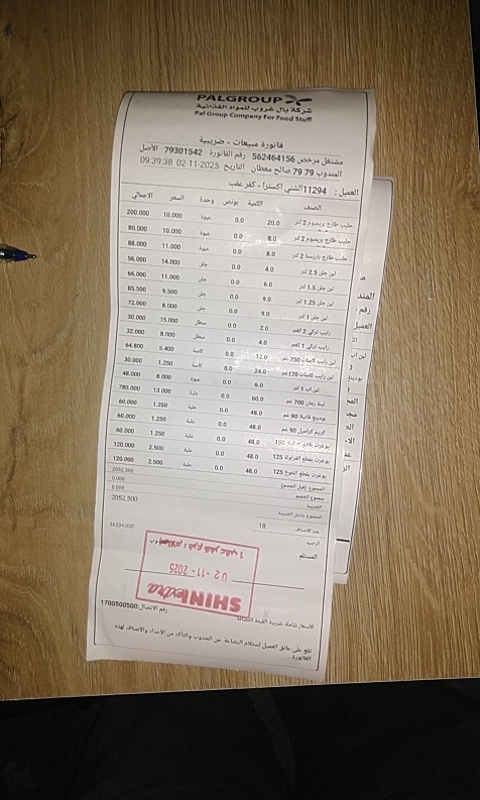 PALGROUP
شركة بال غروب للمواد الغذائية
Pal Group Company For Food Stuff
فاتورة مبيعات - ضريبية
مشتغل مرخص 562464156 رقم الفاتورة 79301542 الأصل
المندوب 79 79 صالح معطان التاريخ 2025-11-02 09:39:38
العميل : 11294الشني اكسترا - كفر عقب
الصنف الكمية بونص وحدة السعر الاجمالي
حليب طازج بريميوم 2 لتر 20.0 0.0 عبوة 10.000 200.000
حليب طازج بريميوم 2 لتر 8.0 0.0 عبوة 10.000 80.000
حليب طازج باريستا 2 لتر 8.0 0.0 عبوة 11.000 88.000
لبن جلن 2.5 لتر 4.0 0.0 جلن 14.000 56.000
لبن جلن 1.5 لتر 6.0 0.0 جلن 11.000 66.000
لبن جلن 1.25 لتر 9.0 0.0 جلن 9.500 85.500
لبن جلن 1 لتر 9.0 0.0 جلن 8.000 72.000
رايب تركي 2 كغم 2.0 0.0 سطل 15.000 30.000
رايب تركي 1 كغم 4.0 0.0 سطل 8.000 32.000
لبن رايب كاسات 250 غم 12.0 0.0 كاسة 5.400 64.800
لبن رايب كاسات 170 غم 24.0 0.0 كاسة 1.250 30.000
لبن اب 1 لتر 6.0 0.0 عبوة 8.000 48.000
لبنة زمان 700 غم 60.0 0.0 علبة 13.000 780.000
بودينغ فانيلا 90 غم 48.0 0.0 علبة 1.250 60.000
كريم كراميل 90 غم 48.0 0.0 علبة 1.250 60.000
يوغرت 150 48.0 0.0 علبة 1.250 60.000
يوغرت بقطع الفراولة 125 48.0 0.0 علبة 2.500 120.000
يوغرت بقطع الخوخ 125 48.0 0.0 علبة 2.500 120.000
المجموع (قبل الخصم) 2052.300
مجموع الخصم 0.000
الضريبة 0.000
المجموع شامل الضريبة 2052.500
عدد الاصناف 18
الرصيد
المستلم
SHINI extra
02-11-2025
الأسعار شاملة ضريبة القيمة المضافة
رقم الاتصال 1700500500
تقع على عاتق العميل إستلام البضاعة من المندوب والتأكد من الاعداد والأصناف لهذه
الفاتورة